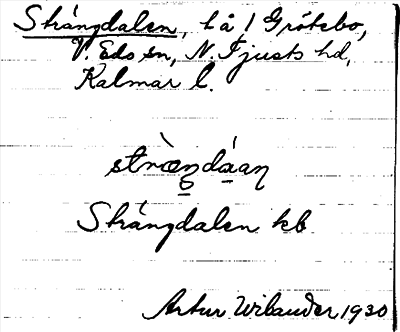 Strángdalen, t å / Grötebo,
V. Eds sn, N. Tjusts hd,
Kalmar l.
Strángdalen kb
Artur Wilander 1930